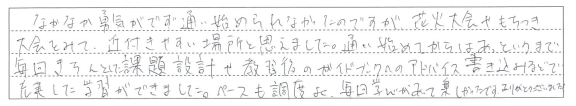 なかなか勇気がでず通い始められなかったのですが、花火大会やもちつき
大会をみて、近付きやすい場所と思えました。通い始めてからはあっというまで
毎回きちんとした課題設計や教習後のガイドブックへのアドバイス書き込みなどで
充実した学習ができました。ペースも調度よく、毎回学びがあって楽しかったです。ありがとうございました